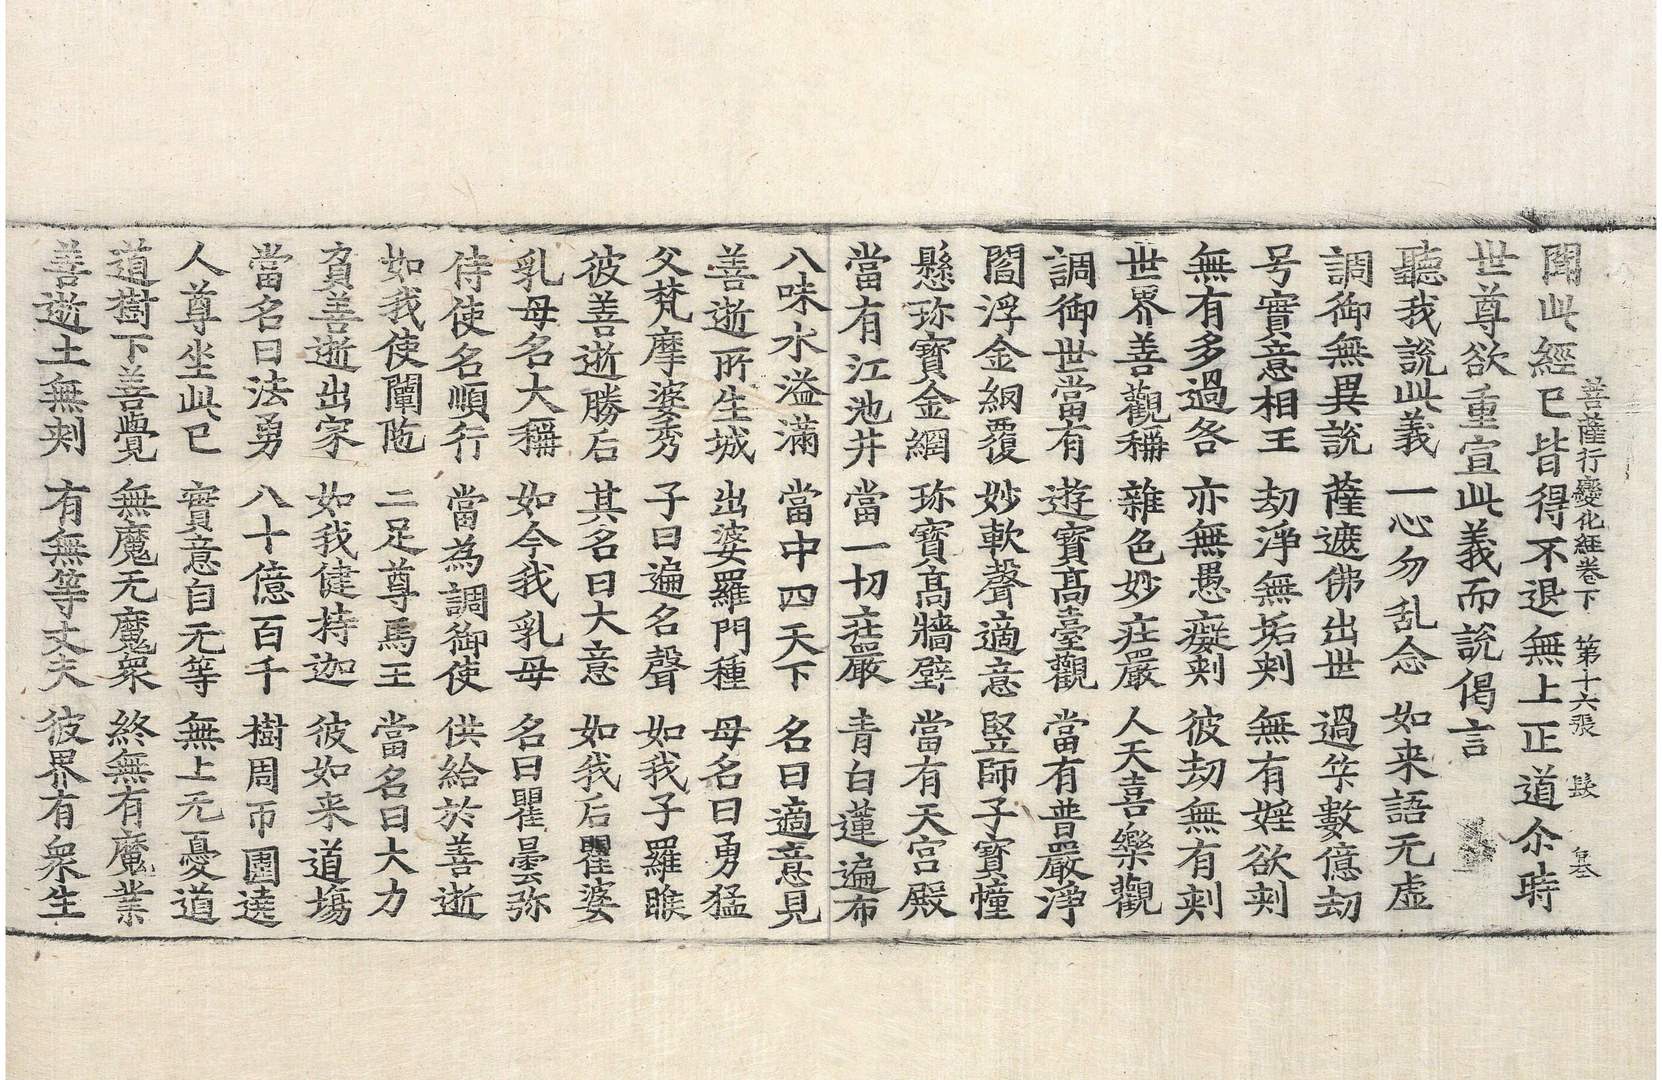 菩薩行變化經卷下 第十六張 髮
聞此經已皆得不退無上正道尒時
世尊欲重宣此義而說偈言
聽我說此義 一心勿乱念 如来語无虛
調御無異說 薩遮佛出世 過笇數億劫
号實意相王 劫淨無垢刾 無有婬欲刾
無有多過咎 亦無愚癡刾 彼劫無有刾
世界善觀稱 雜色妙莊嚴 人天喜樂觀
調御世當有 遊寶髙臺觀 當有普嚴淨
閻浮金網覆 妙軟聲適意 竪師子寶幢
懸珎寶金網 珎寶髙牆壁 當有天宮殿
當有江池井 當一切莊嚴 青白蓮遍布
八味水溢滿 當中四天下 名曰適意見
善逝所生城 出婆羅門種 母名曰勇猛
父梵摩婆秀 子曰遍名聲 如我子羅睺
彼善逝勝后 其名曰大意 如我后瞿婆
乳母名大稱 如今我乳母 名曰瞿曇弥
侍使名順行 當為調御使 供給於善逝
如我使闡陁 二足尊馬王 當名曰大力
負善逝出家 如我健持迦 彼如来道場
當名曰法勇 八十億百千 樹周帀圍遶
人尊坐此已 實意自无等 無上无憂道
道樹下善覺 無魔无魔衆 終無有魔業
善逝土無刾 有無等丈夫 彼界有衆生